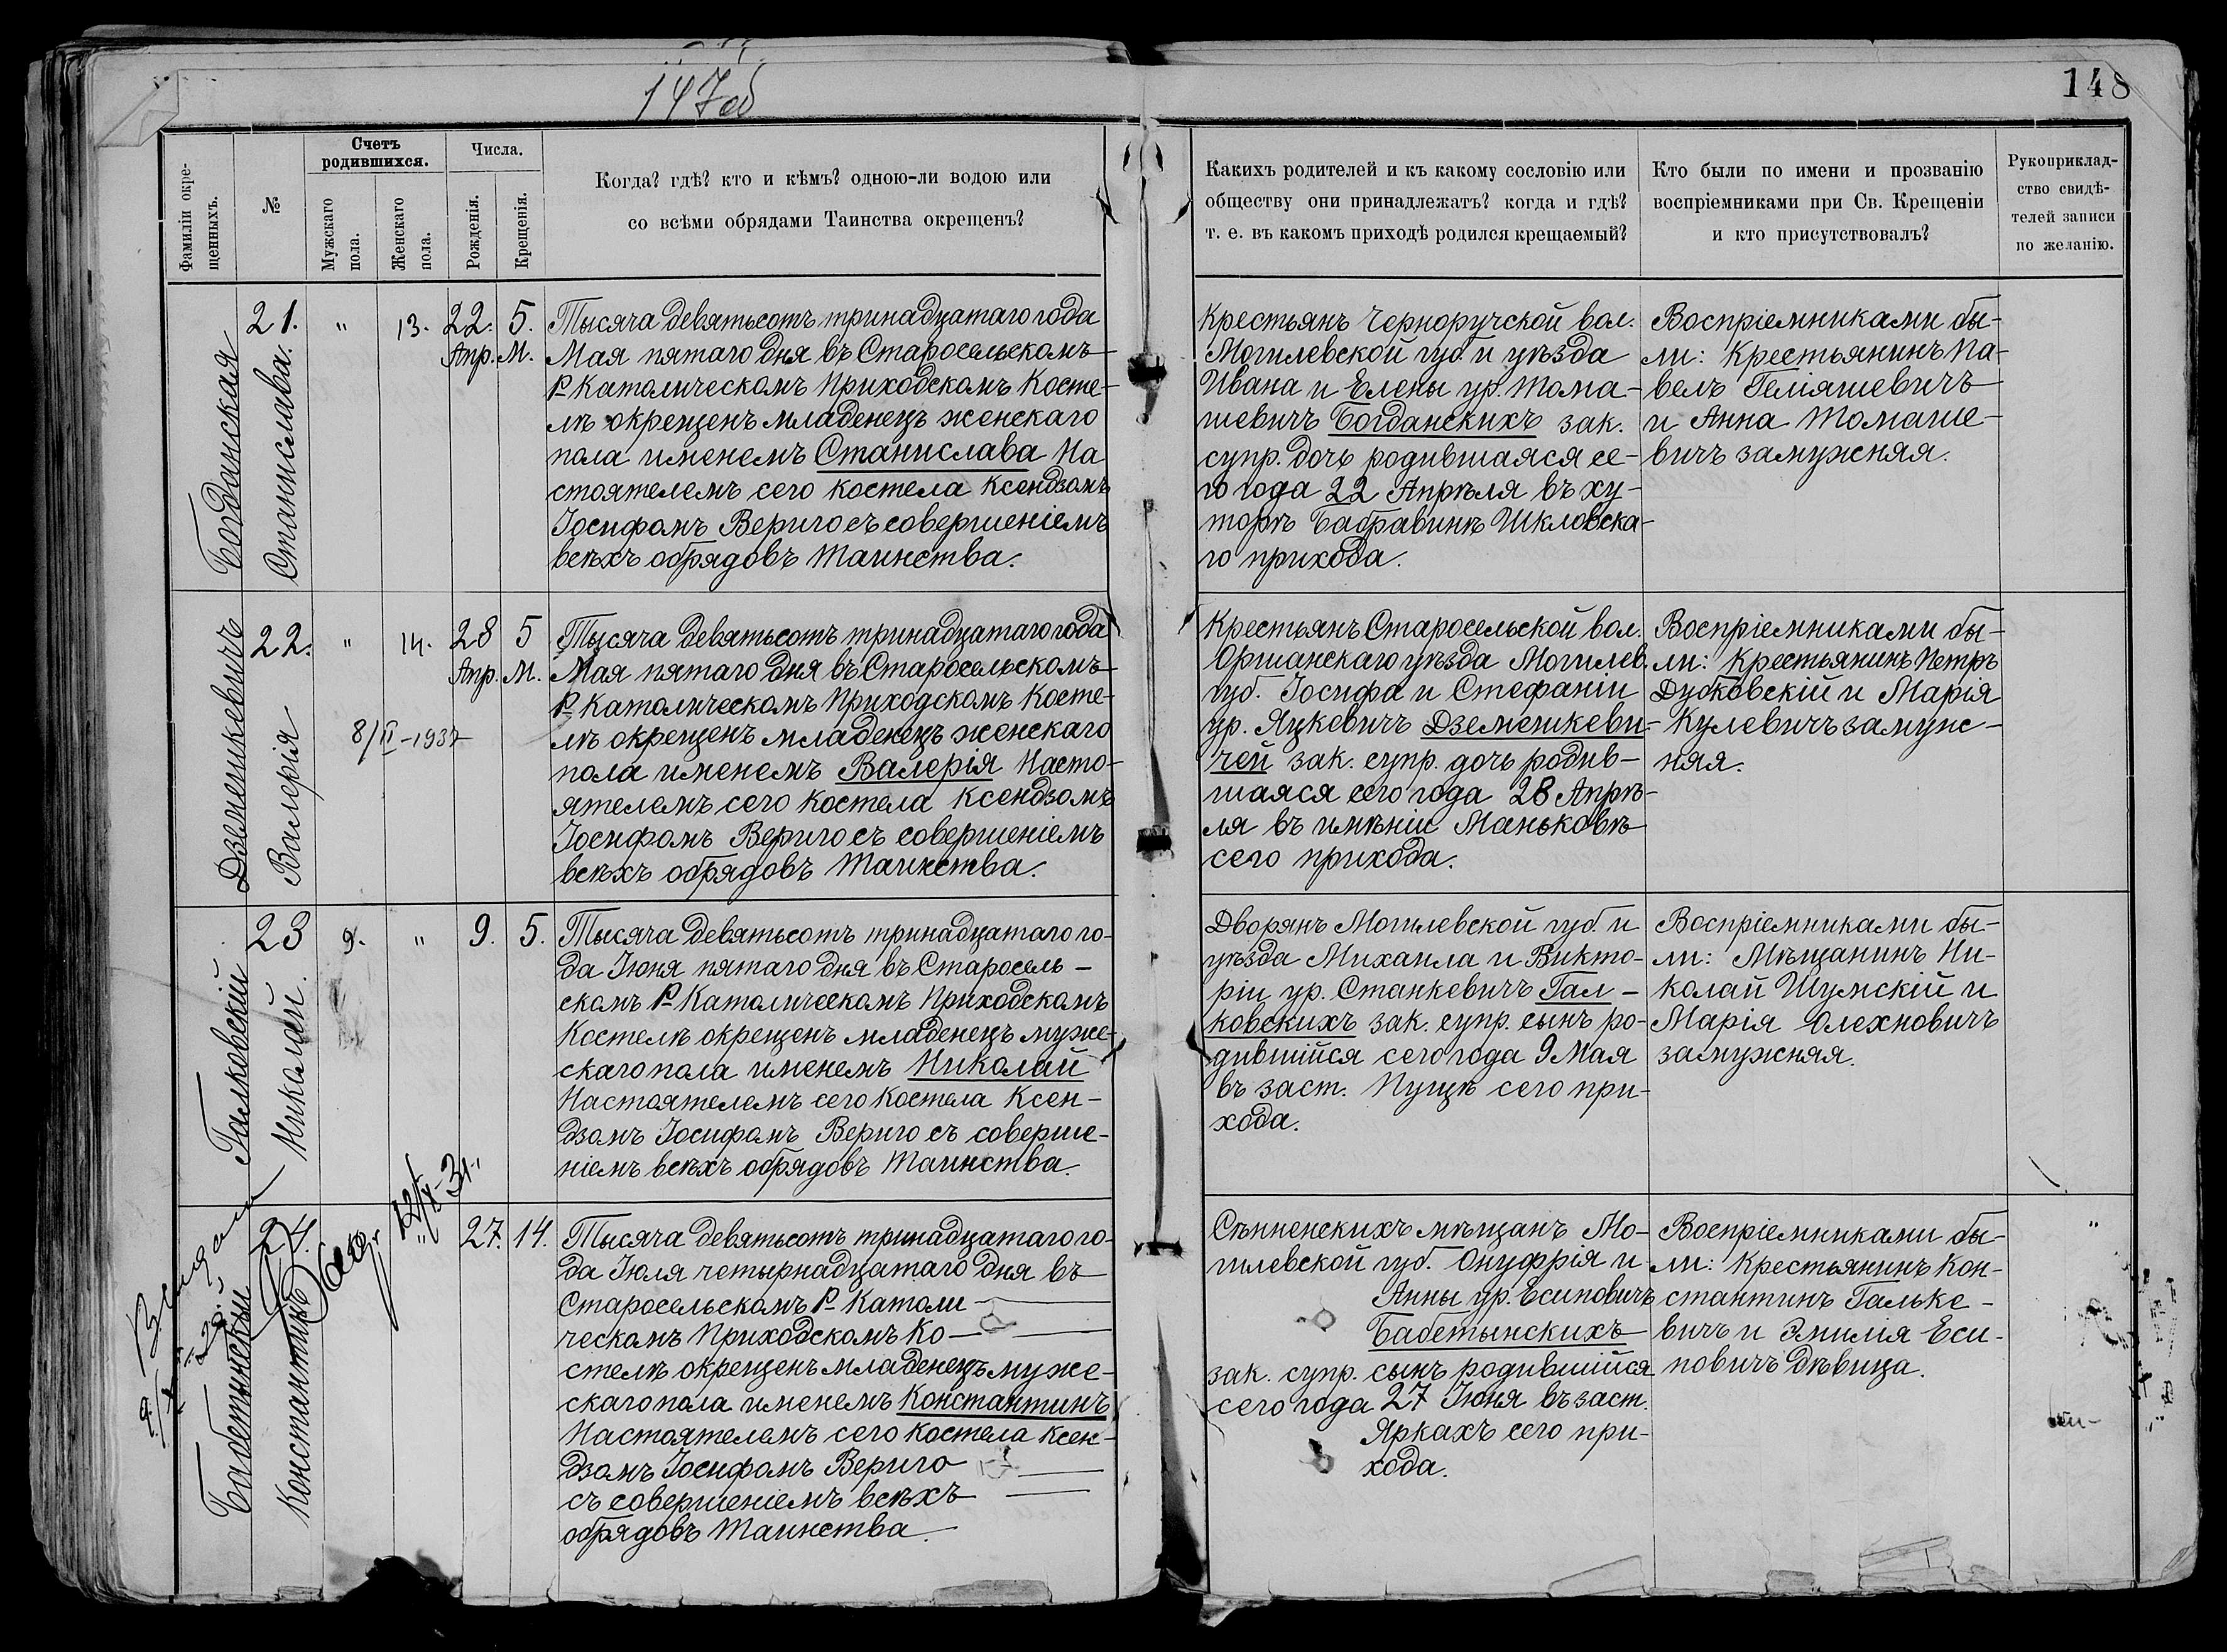 147об
148
Фамиліи окре-
щенныхъ.
№
Счетъ
родившихся.
Мужскаго
пола.
Женскаго
пола.
Числа.
Рожденія.
Крещенія.
Когда? гдѣ? кто и кѣмъ? одною-ли водою или
со всѣми обрядами Таинства окрещенъ?
Какихъ родителей и къ какому сословію или
обществу они принадлежатъ? когда и гдѣ?
т. е. въ какомъ приходѣ родился крещаемый?
Кто были по имени и прозванію
воспріемниками при Св. Крещеніи
и кто присутствовалъ?
Рукоприклад-
ство свидѣ-
телей записи
по желанію.
Богданская
Станислава.
21.
"
13.
22.
Апр.
5.
М.
Тысяча девятьсотъ тринадцатаго года
Мая пятаго дня въ Старосельскомъ
Р. Католическомъ Приходскомъ Косте-
лѣ окрещенъ младенецъ женскаго
пола именемъ Станислава На
стоятелемъ сего костела Ксендзомъ
Іосифомъ Вериго съ совершеніемъ
всѣхъ обрядовъ Таинства.
Крестьянъ Черноручской вол.
Могилевской губ. и уѣзда
Ивана и Елены ур. Тома-
шевичъ Богданскихъ зак.
супр. дочь родившаяся се-
го года 22 Апрѣля въ ху-
торѣ Бабравинѣ Шкловска-
го прихода.
Воспріемниками бы-
ли: Крестьянинъ Па-
велъ Геліяшевичъ
и Анна Томаше-
вичъ замужняя.
Дземешкевичъ
Валерія
22.
"
14.
28
Апр.
5
М.
8/II-1937
Тысяча девятьсотъ тринадцатаго года
Мая пятаго дня въ Старосельскомъ
Р. Католическомъ Приходскомъ Косте-
лѣ окрещенъ младенецъ женскаго
пола именемъ Валерія Насто-
ятелемъ сего Костела Ксендзомъ
Іосифомъ Вериго съ совершеніемъ
всѣхъ обрядовъ Таинства.
Крестьянъ Старосельской вол.
Оршанскаго уѣзда Могилев.
губ. Іосифа и Стефаніи
ур. Яцкевичъ Дземешкеви-
чей зак. супр. дочь родив-
шаяся сего года 28 Апрѣ-
ля въ имѣніи Маньковѣ
сего прихода.
Воспріемниками бы-
ли: Крестьянинъ Петръ
Дубковскій и Марія
Кулевичъ замуж-
няя.
Галковскій
Николай.
23
9.
"
9.
5.
Тысяча девятьсотъ тринадцатаго го-
да Іюня пятаго дня въ Старосель-
скомъ Р. Католическомъ Приходскомъ
Костелѣ окрещенъ младенецъ муже-
скаго пола именемъ Николай
Настоятелемъ сего Костела Ксен-
дзомъ Іосифомъ Вериго съ соверше-
ніемъ всѣхъ обрядовъ Таинства.
Дворянъ Могилевской губ. и
уѣзда Михаила и Викто-
ріи ур. Станкевичъ Гал-
ковскихъ зак. супр. сынъ ро-
дившійся сего года 9 Мая
въ заст. Пущѣ сего при-
хода.
Воспріемниками бы-
ли: Мѣщанинъ Ни-
колай Шумскій и
Марія Олехновичъ
замужняя.
Бабетынскій
Константинъ
24.
"
27.
14.
Тысяча девятьсотъ тринадцатаго го-
да Іюля четырнадцатаго дня въ
Старосельскомъ Р. Католи-
ческомъ Приходскомъ Ко-
стелѣ окрещенъ младенецъ муже-
скаго пола именемъ Константинъ
Настоятелемъ сего костела Ксен-
дзомъ Іосифомъ Вериго
съ совершеніемъ всѣхъ
обрядовъ Таинства.
Сѣнненскихъ мѣщанъ Мо-
гилевской губ. Онуфрія и
Анны ур. Есиповичъ
Бабетынскихъ
зак. супр. сынъ родившійся
сего года 27 Іюня въ заст.
Яркахъ сего при-
хода.
Воспріемниками бы-
ли: Крестьянинъ Кон-
стантинъ Гальке-
вичъ и Эмилія Еси-
повичъ дѣвица.
"